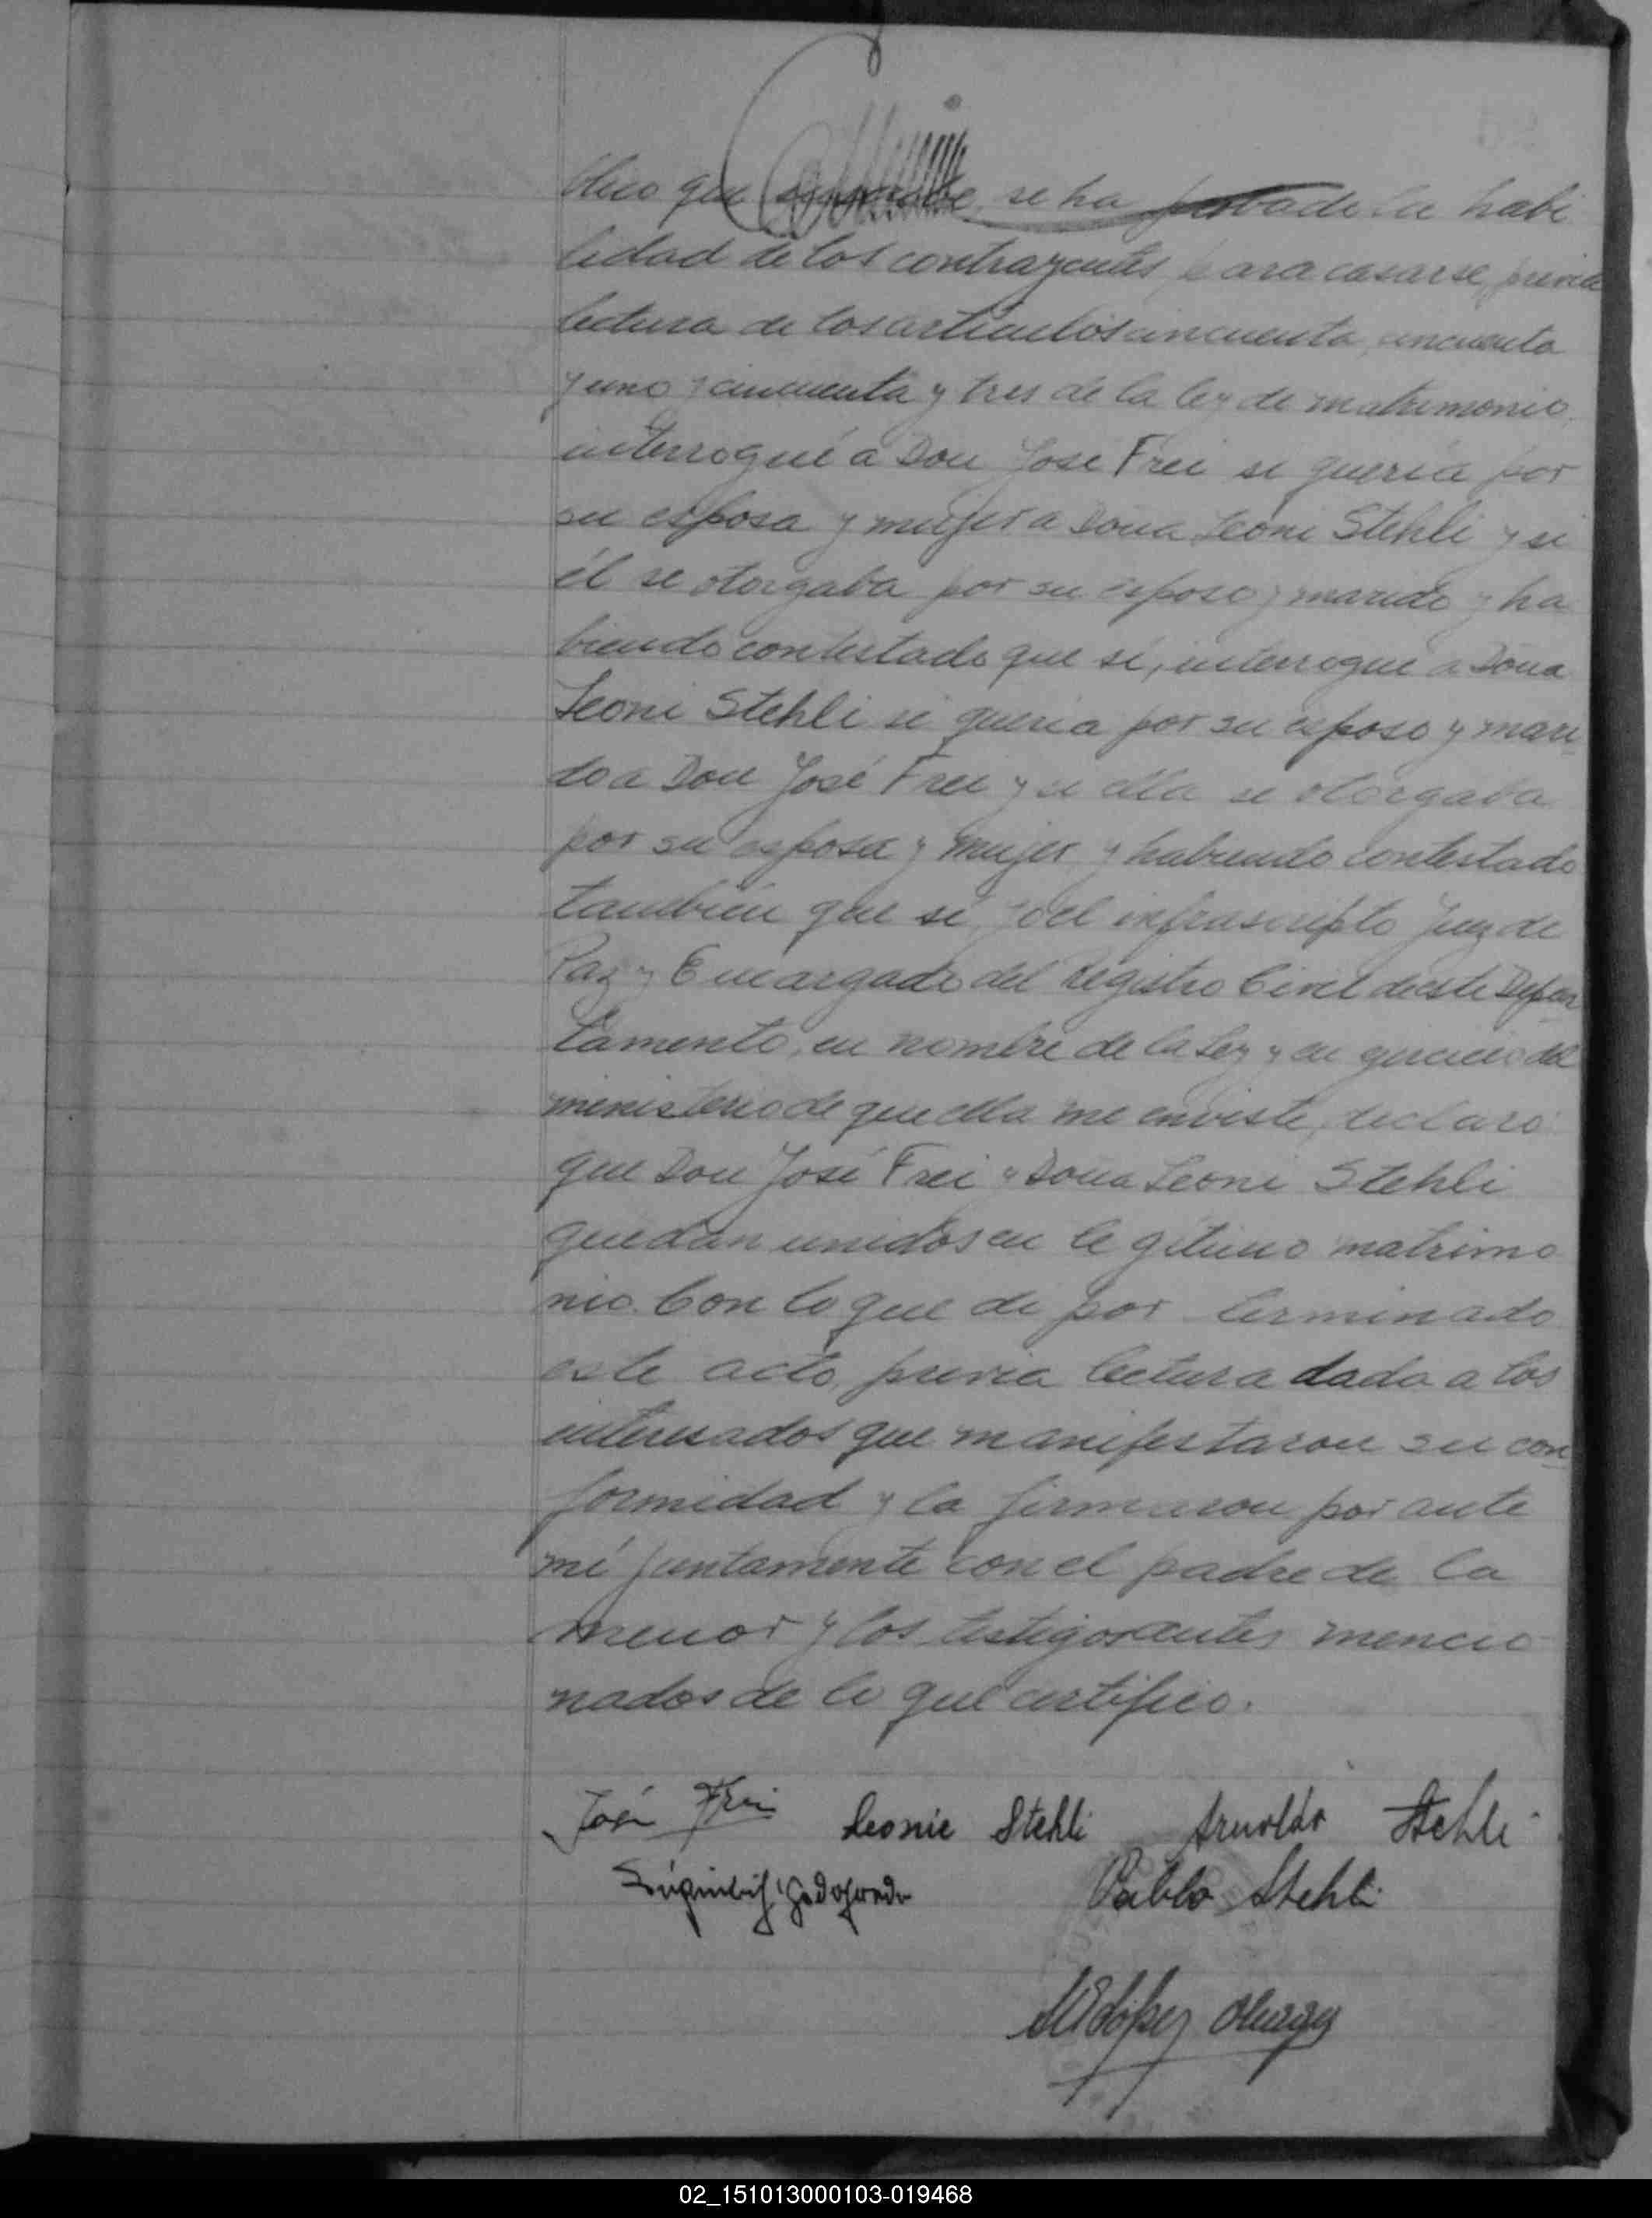 blico que suscribe, se ha probado la habi
lidad de los contrayentes para casarse, previa
lectura de los articulos cincuenta, cincuenta
y uno y cincuenta y tres de la ley de matrimonio,
interrogué a Don Jose Frei si queria por
su esposa y mujer a Dona Leoni Stehli y si
él se otorgaba por su esposo y marido y ha
biendo contestado que sí, interrogué a Dona
Leoni Stehli si queria por su esposo y mari
do a Don José Frei y si ella se otorgaba
por su esposa y mujer y habiendo contestado
también que si, yo el infrascripto Juez de
Paz y Encargado del Registro Civil de este Depar
tamento, en nombre de la Ley y en ejercicio del
ministerio de que ella me enviste, declaro
que Don José Frei y Dona Leoni Stehli
quedan unidos en legitimo matrimo
nio. Con lo que di por terminado
este acto, previa lectura dada a los
interesados que manifestaron su con
formidad y la firmaron por ante
mí juntamente con el padre de la
menor y los testigos antes mencio
nados de lo que certifico.
José Frei Leonie Stehli Arnoldo Stehli
Godofredo Pablo Stehli
López
02_151013000103-019468